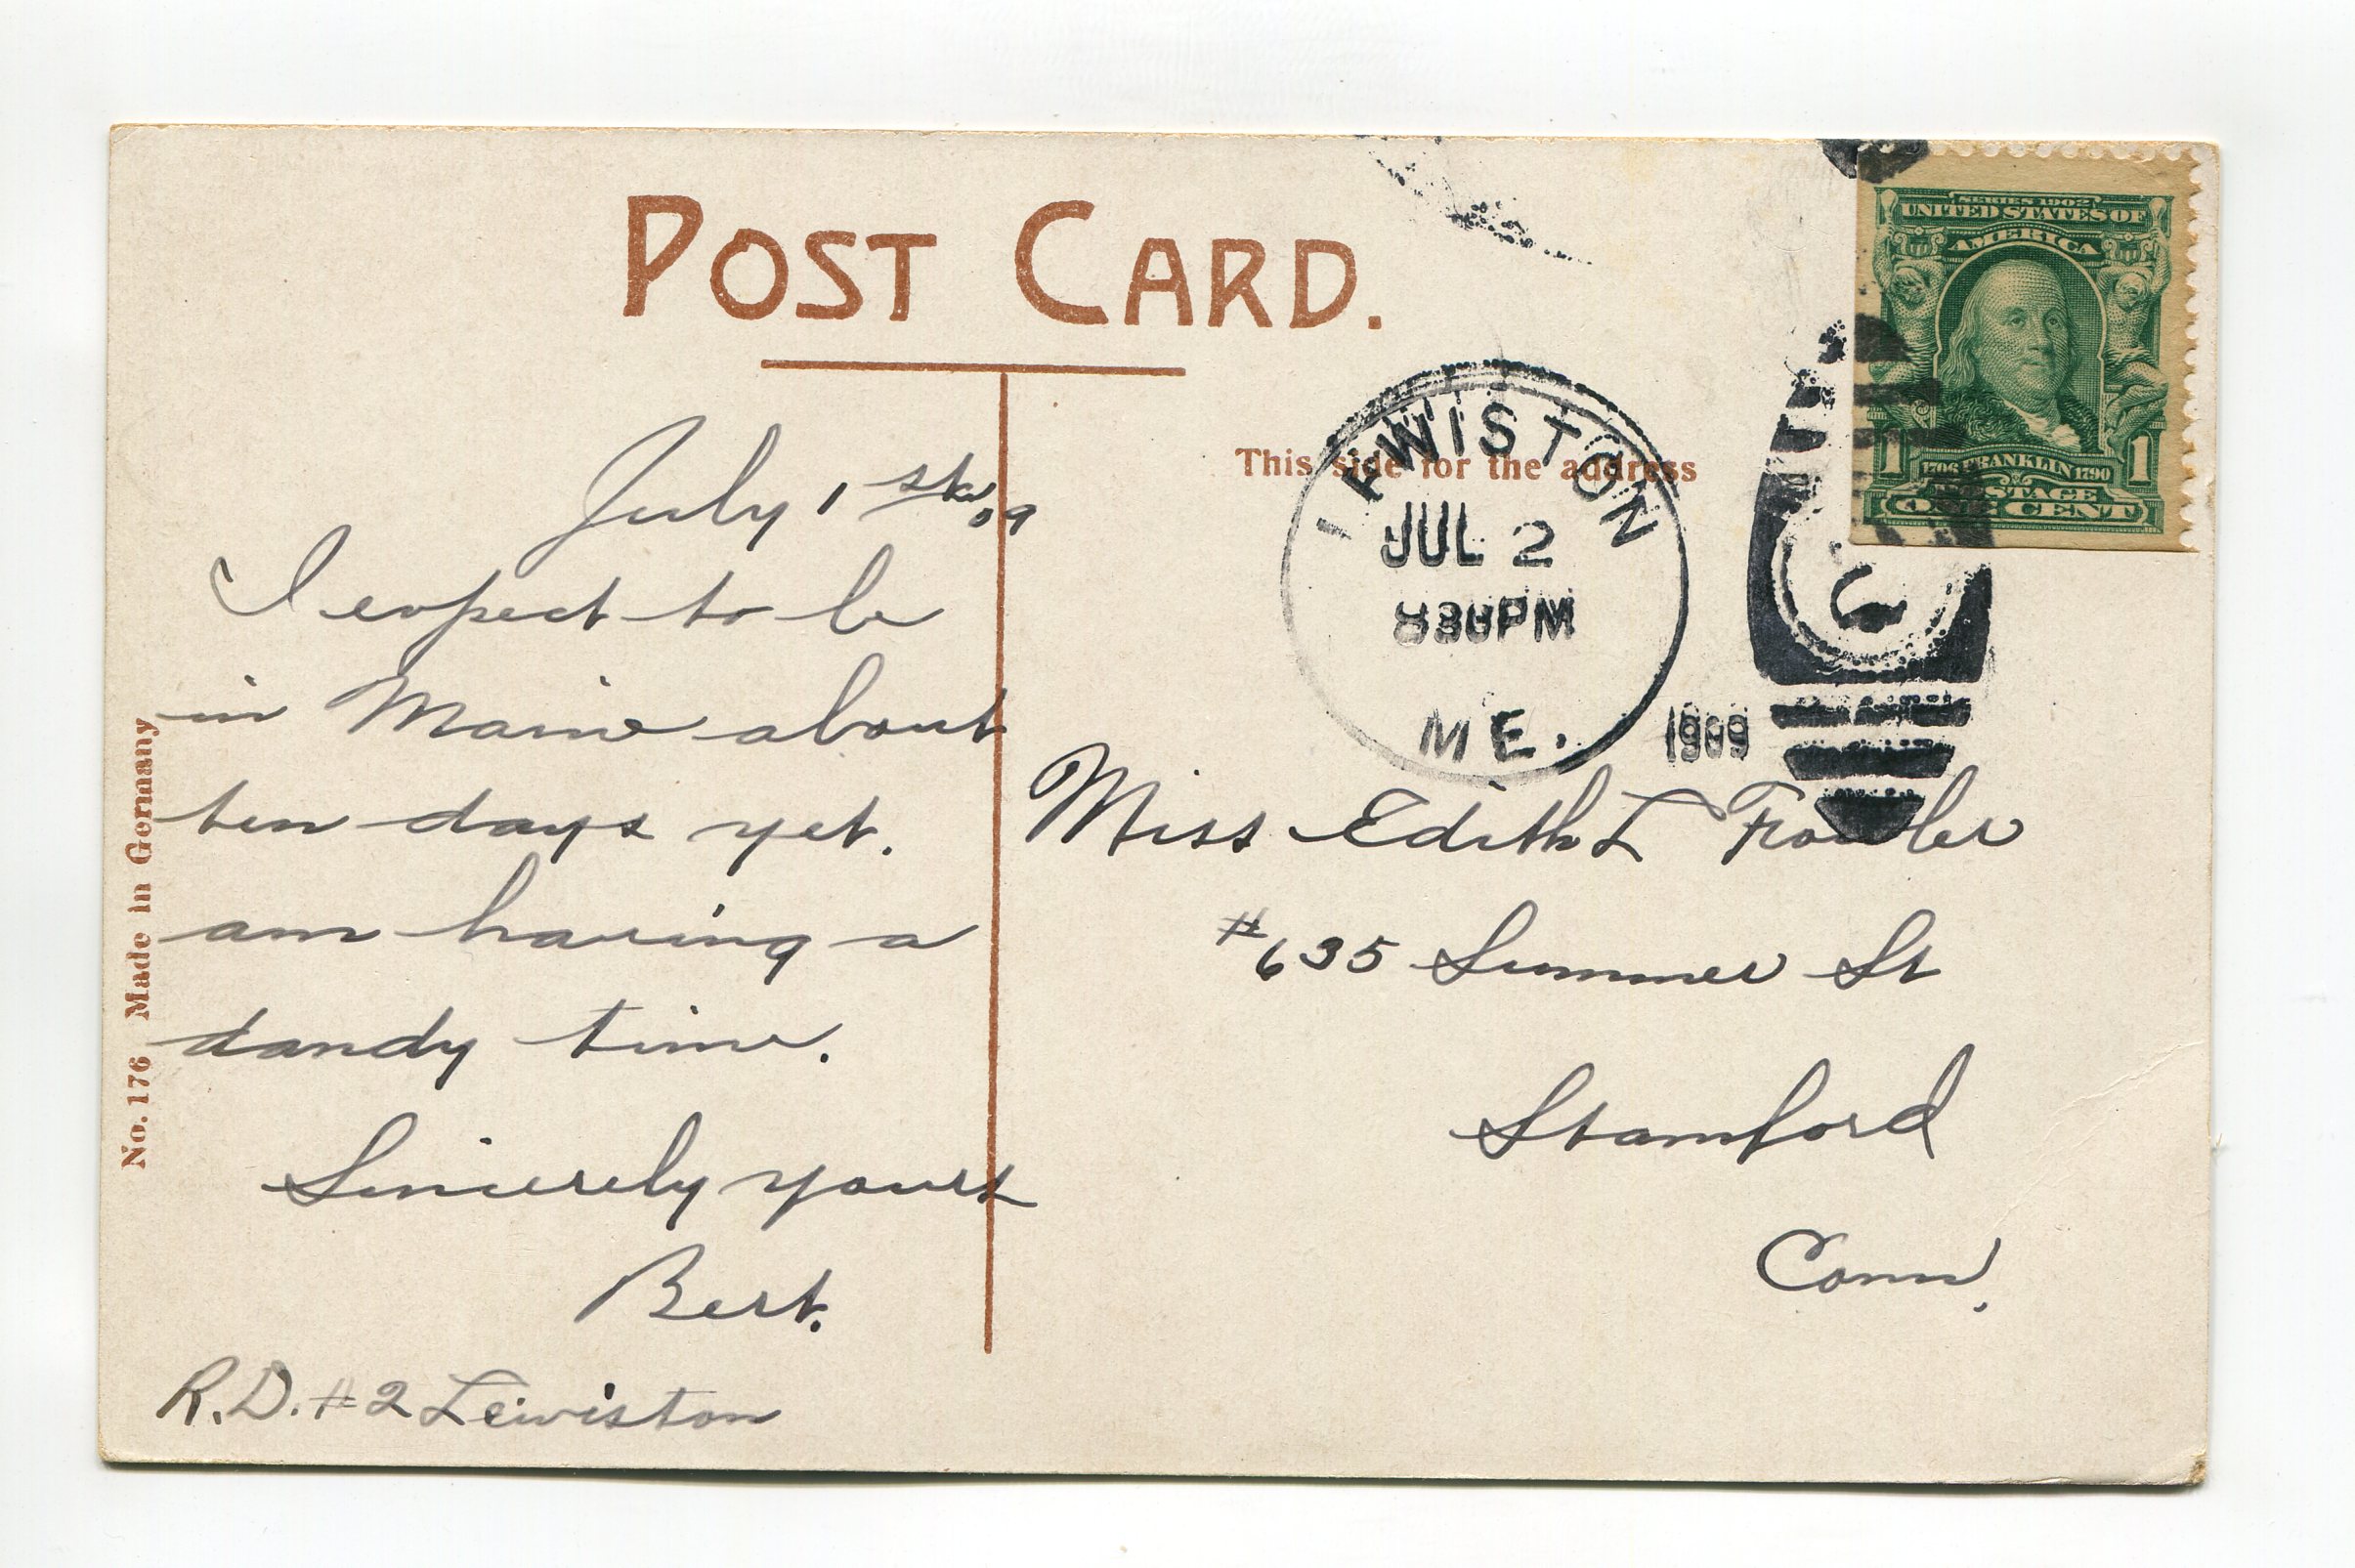 POST CARD.
This side for the address
SERIES 1902
UNITED STATES OF
AMERICA
1706 FRANKLIN 1790
1 1
POSTAGE
ONE CENT
LEWISTON
JUL 2
830PM
ME.
1909
July 1st, 09
I expect to be
in Maine about
ten days yet.
am having a
dandy time.
Sincerely yours
Bert.
R.D. #2 Lewiston
Miss Edith L Fowler
#635 Summer St
Stamford
Conn.
No. 176 Made in Germany